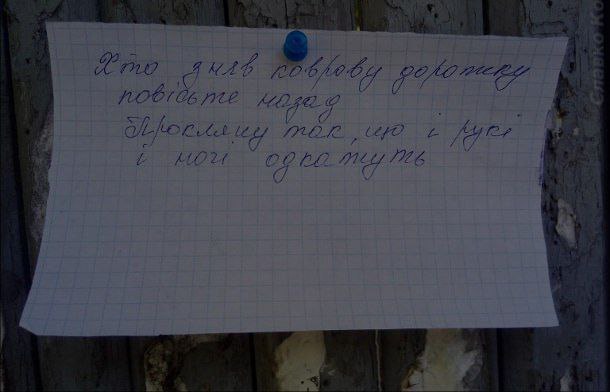 Хто зняв коврову дорожку
повісьте назад
Прокляну так, що і рукі
і ногі одкажуть